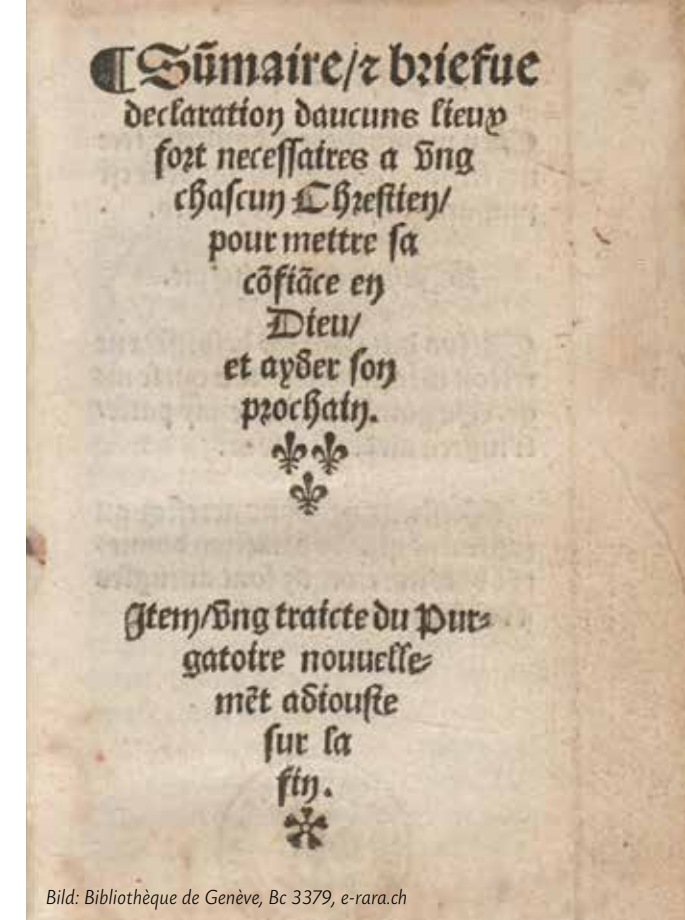 ¶ Sūmaire/⁊ briefue
declaration daucuns lieux
fort necessaires a vng
chascun Chrestien/
pour mettre sa
cōfiāce en
Dieu/
et ayder son
prochain.
Item/vng traicte du Pur⸗
gatoire nouuelle⸗
mēt adiouste
sur la
fin.
Bild: Bibliothèque de Genève, Bc 3379, e-rara.ch